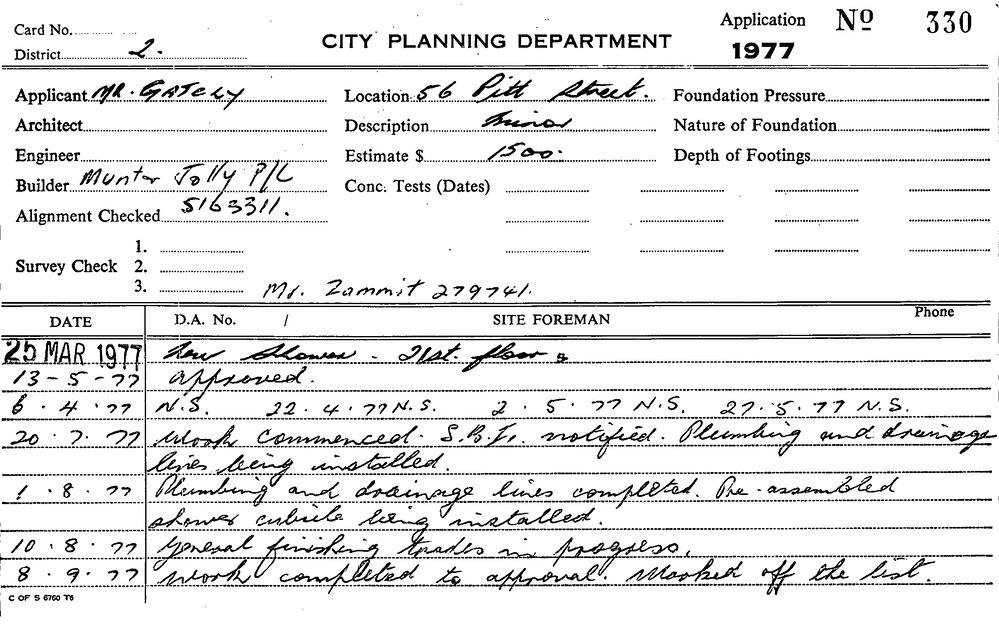 Card No.
District 2.
CITY PLANNING DEPARTMENT
Application No 330
1977
Applicant MR. GATELY
Location 56 Pitt Street.
Foundation Pressure
Architect
Description Minor
Nature of Foundation
Engineer
Estimate $ 1500.
Depth of Footings
Builder Munter Jolly P/L
Conc. Tests (Dates)
Alignment Checked 5163311.
Survey Check 1.
2.
3.
Mr. Zammit 279741.
DATE D.A. No. / SITE FOREMAN Phone
25 MAR 1977 New Shower - 21st. floor
13-5-77 approved.
6.4.77 N.S. 22.4.77 N.S. 2.5.77 N.S. 27.5.77 N.S.
20.7.77 Work commenced. notified. Plumbing and drainage
lines being installed.
1.8.77 Plumbing and drainage lines completed. Pre-assembled
shower cubicle being installed.
10.8.77 General finishing trades in progress.
8.9.77 Work completed to approval. Marked off the list.
C OF S 6760 T6